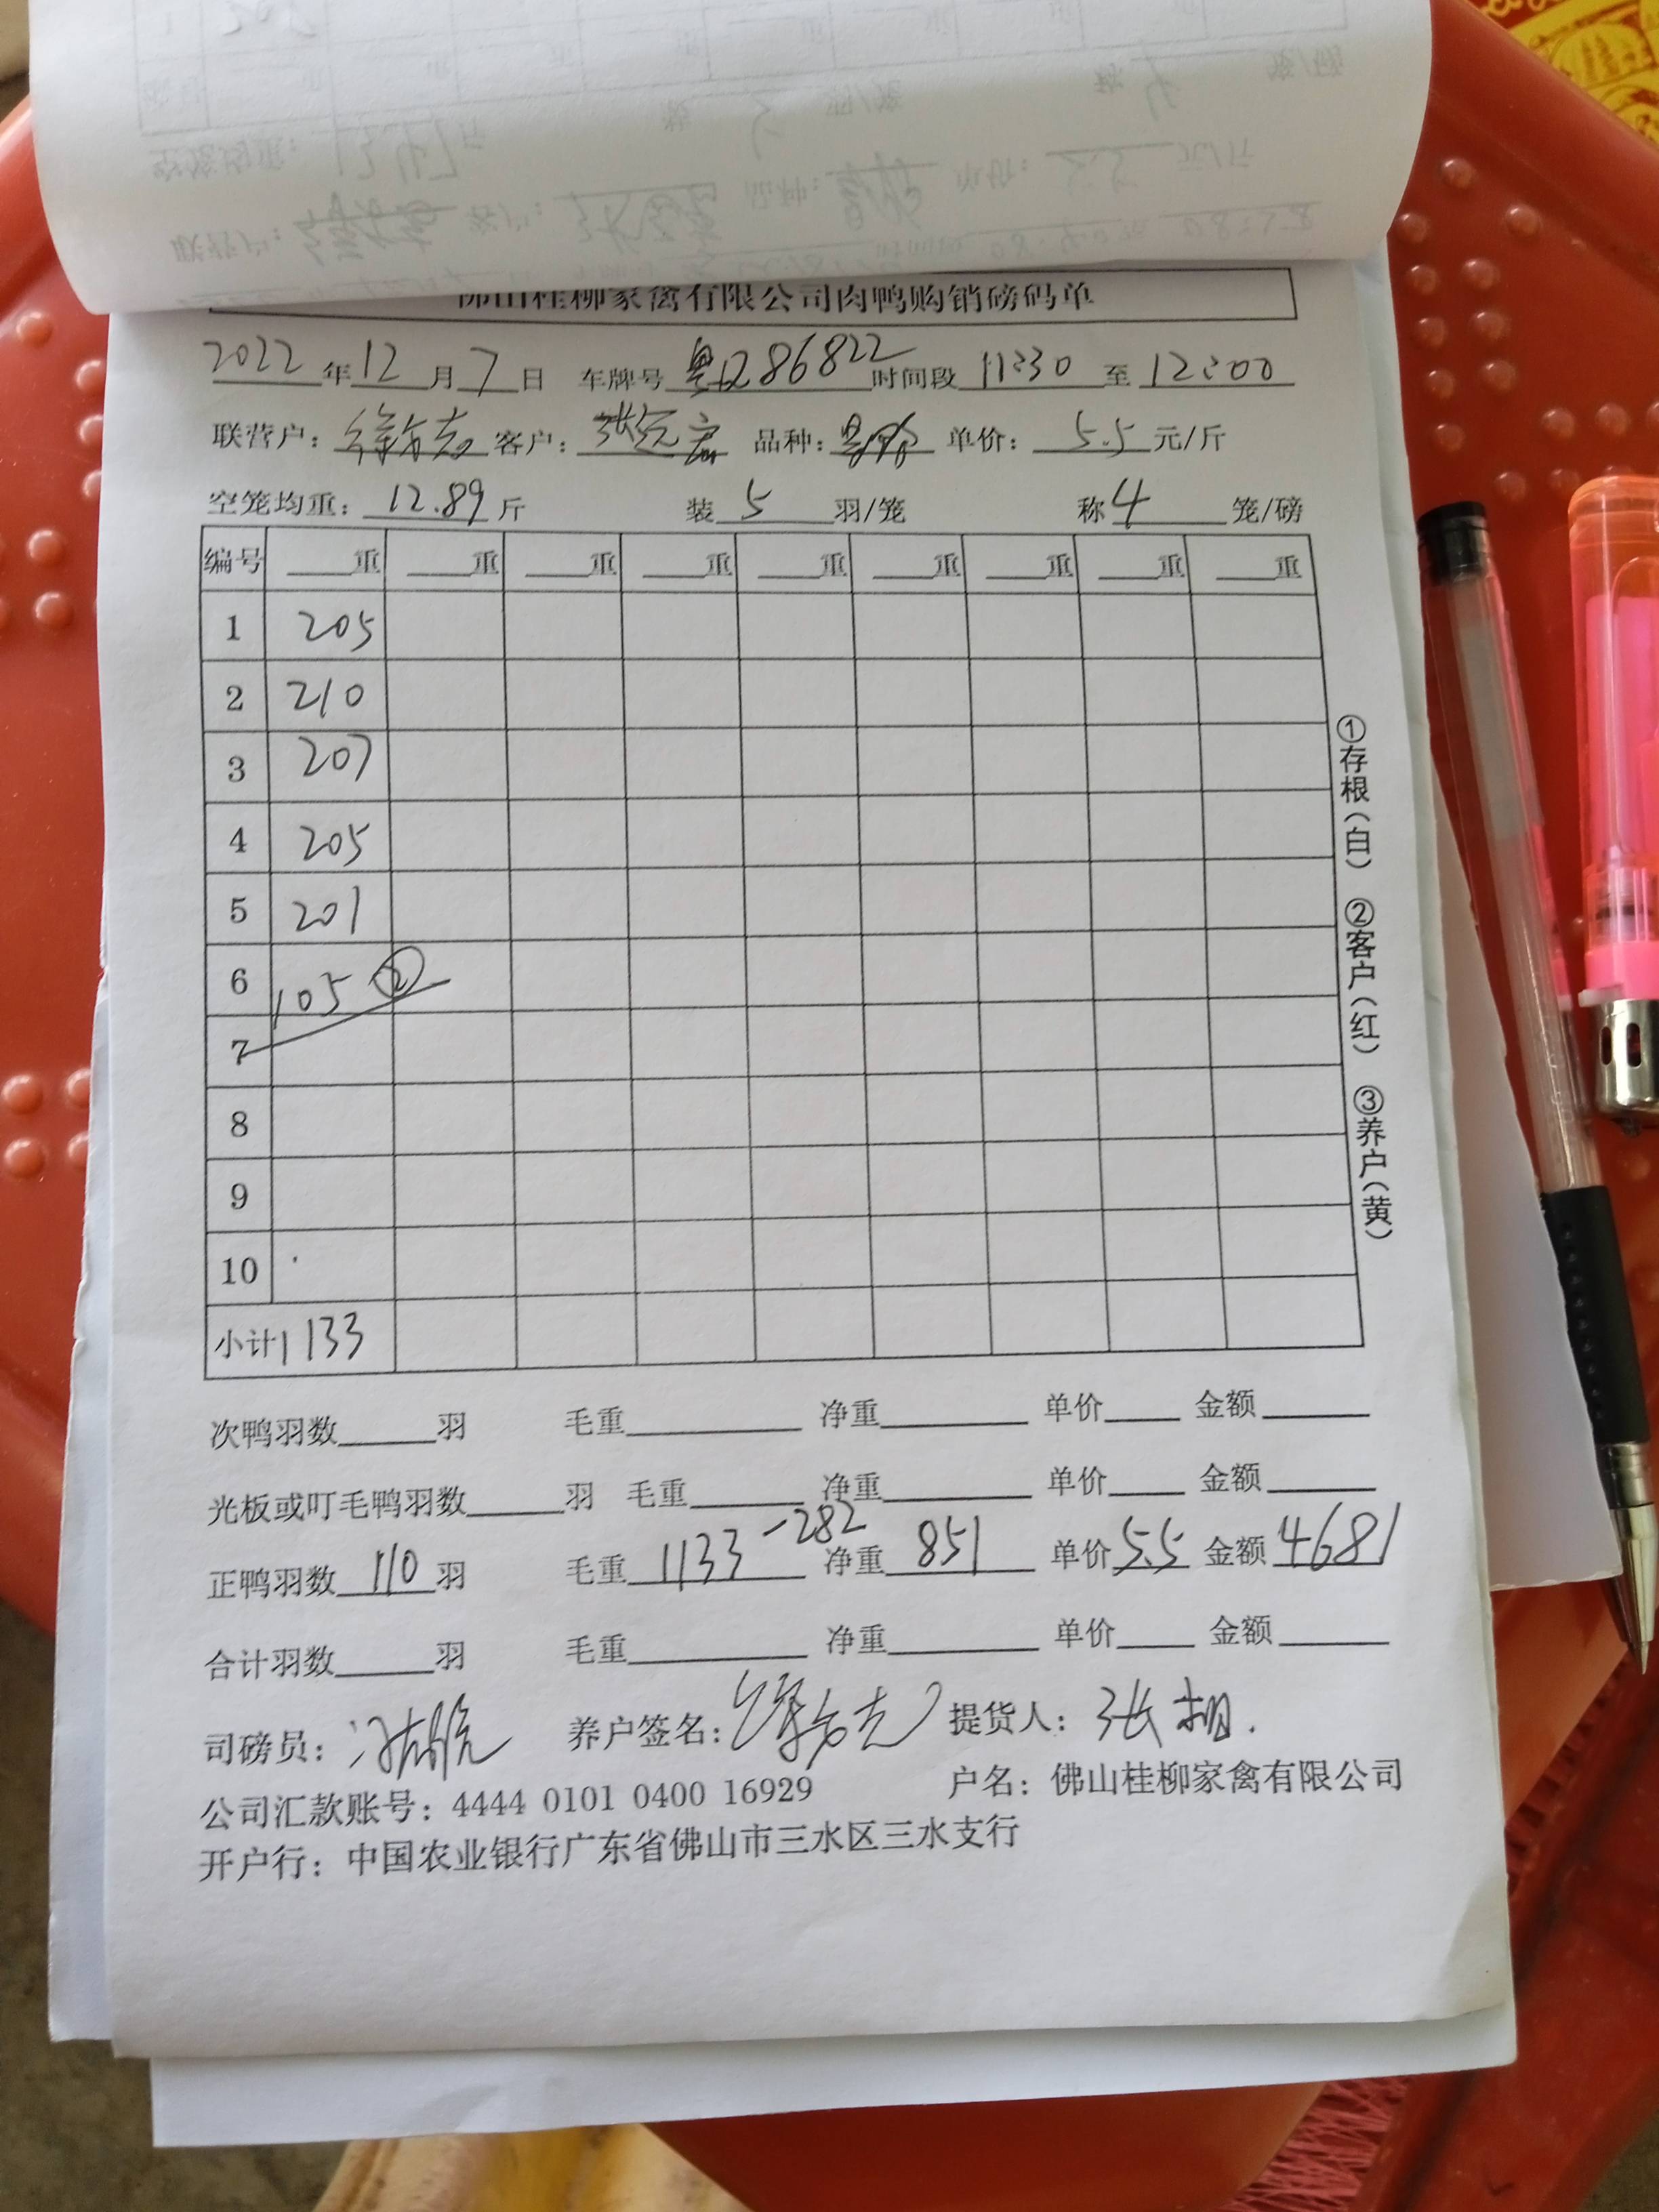 佛山桂柳家禽有限公司肉鸭购销磅码单
2022年12月7日 车牌号 粤 86822 时间段 11:30 至 12:00
联营户： 客户：张 品种： 单价：5.5元/斤
空笼均重：12.89斤 装5羽/笼 称4笼/磅
编号 重 重 重 重 重 重 重 重 重
1 205
2 210
3 207
4 205
5 201
6 105 ②
7
8
9
10
小计 1133
①存根（白） ②客户（红） ③养户（黄）
次鸭羽数 羽 毛重 净重 单价 金额
光板或叮毛鸭羽数 羽 毛重 净重 单价 金额
正鸭羽数110羽 毛重1133-282 净重851 单价5.5 金额4681
合计羽数 羽 毛重 净重 单价 金额
司磅员： 养户签名： 提货人：张
公司汇款账号：4444 0101 0400 16929 户名：佛山桂柳家禽有限公司
开户行：中国农业银行广东省佛山市三水区三水支行